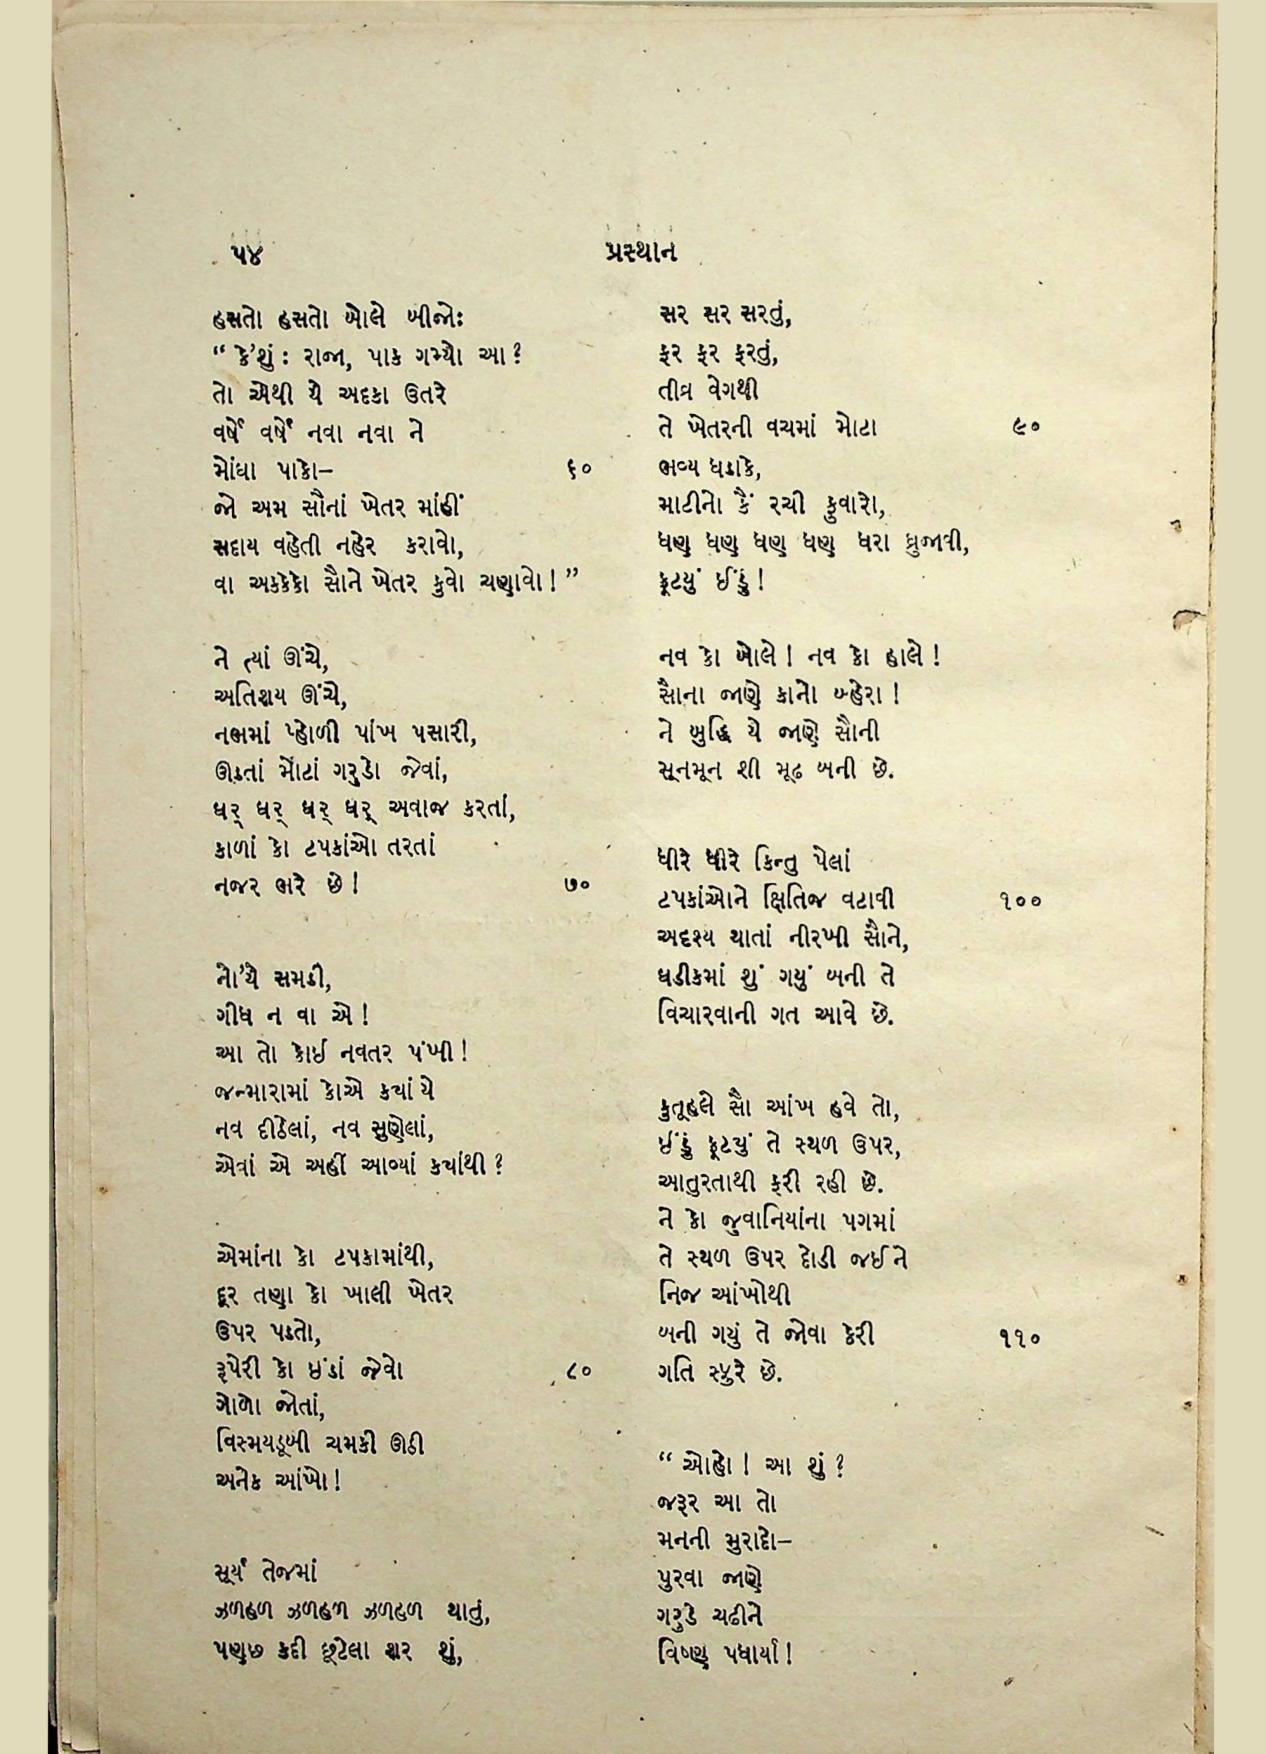 ૫૪
પ્રસ્થાન
હસતો હસતો બોલે બીજોઃ
“ કે'શું : રાજા, પાક ગમ્યો આ ?
તો એથી યે અદકા ઉતરે
વર્ષે વર્ષે નવા નવા ને
મોંઘા પાકો— ૬૦
જો અમ સૌનાં ખેતર માંહીં
સદાય વહેતી નહેર કરાવો,
વા અકકેકો સૌને ખેતર કુવો ચણાવો ! ”
ને ત્યાં ઊંચે,
અતિશય ઊંચે,
નભમાં પ્હોળી પાંખ પસારી,
ઊડતાં મોટાં ગરુડો જેવાં,
ઘર્ ઘર્ ઘર્ ઘર્ અવાજ કરતાં,
કાળાં કો ટપકાંઓ તરતાં
નજર ભરે છે ! ૭૦
નો'યે સમડી,
ગીધ ન વા એ !
આ તો કોઈ નવતર પંખી !
જન્મારામાં કોએ કયાંયે
નવ દીઠેલાં, નવ સુણેલાં,
એવાં એ અહીં આવ્યાં કયાંથી ?
એમાંના કો ટપકામાંથી,
દૂર તણા કો ખાલી ખેતર
ઉપર પડતો,
રૂપેરી કો ઇંડાં જેવો ૮૦
ગોળો જોતાં,
વિસ્મયડૂબી ચમકી ઊઠી
અનેક આંખો !
સૂર્ય તેજમાં
ઝળહળ ઝળહળ ઝળહળ થાતું,
પણછ કદી છૂટેલા શર શું,
સર સર સરતું,
ફર ફર ફરતું,
તીવ્ર વેગથી
તે ખેતરની વચમાં મોટા ૯૦
ભવ્ય ધડાકે,
માટીનો કૈં રચી ફુવારો,
ધણ ધણ ધણ ધણ ધરા ધ્રુજાવી,
ફૂટયું ઈંડું !
નવ કો બોલે ! નવ કો હાલે !
સૌના જાણે કાનો બ્હેરા !
ને બુદ્ધિ યે જાણે સૌની
સૂનમૂન શી મૂઢ બની છે.
ધીરે ધીરે કિન્તુ પેલાં
ટપકાંઓને ક્ષિતિજ વટાવી ૧૦૦
અદૃશ્ય થાતાં નીરખી સૌને,
ઘડીકમાં શું ગયું બની તે
વિચારવાની ગત આવે છે.
કુતૂહલે સૌ આંખ હવે તો,
ઈંડું ફૂટયું તે સ્થળ ઉપર,
આતુરતાથી ફરી રહી છે.
ને કો જુવાનિયાંના પગમાં
તે સ્થળ ઉપર દોડી જઈને
નિજ આંખોથી
બની ગયું તે જોવા કેરી ૧૧૦
ગતિ સ્ફુરે છે.
“ ઓહો ! આ શું ?
જરૂર આ તો
મનની મુરાદો—
પુરવા જાણે
ગરુડે ચઢીને
વિષ્ણુ પધાર્યા !